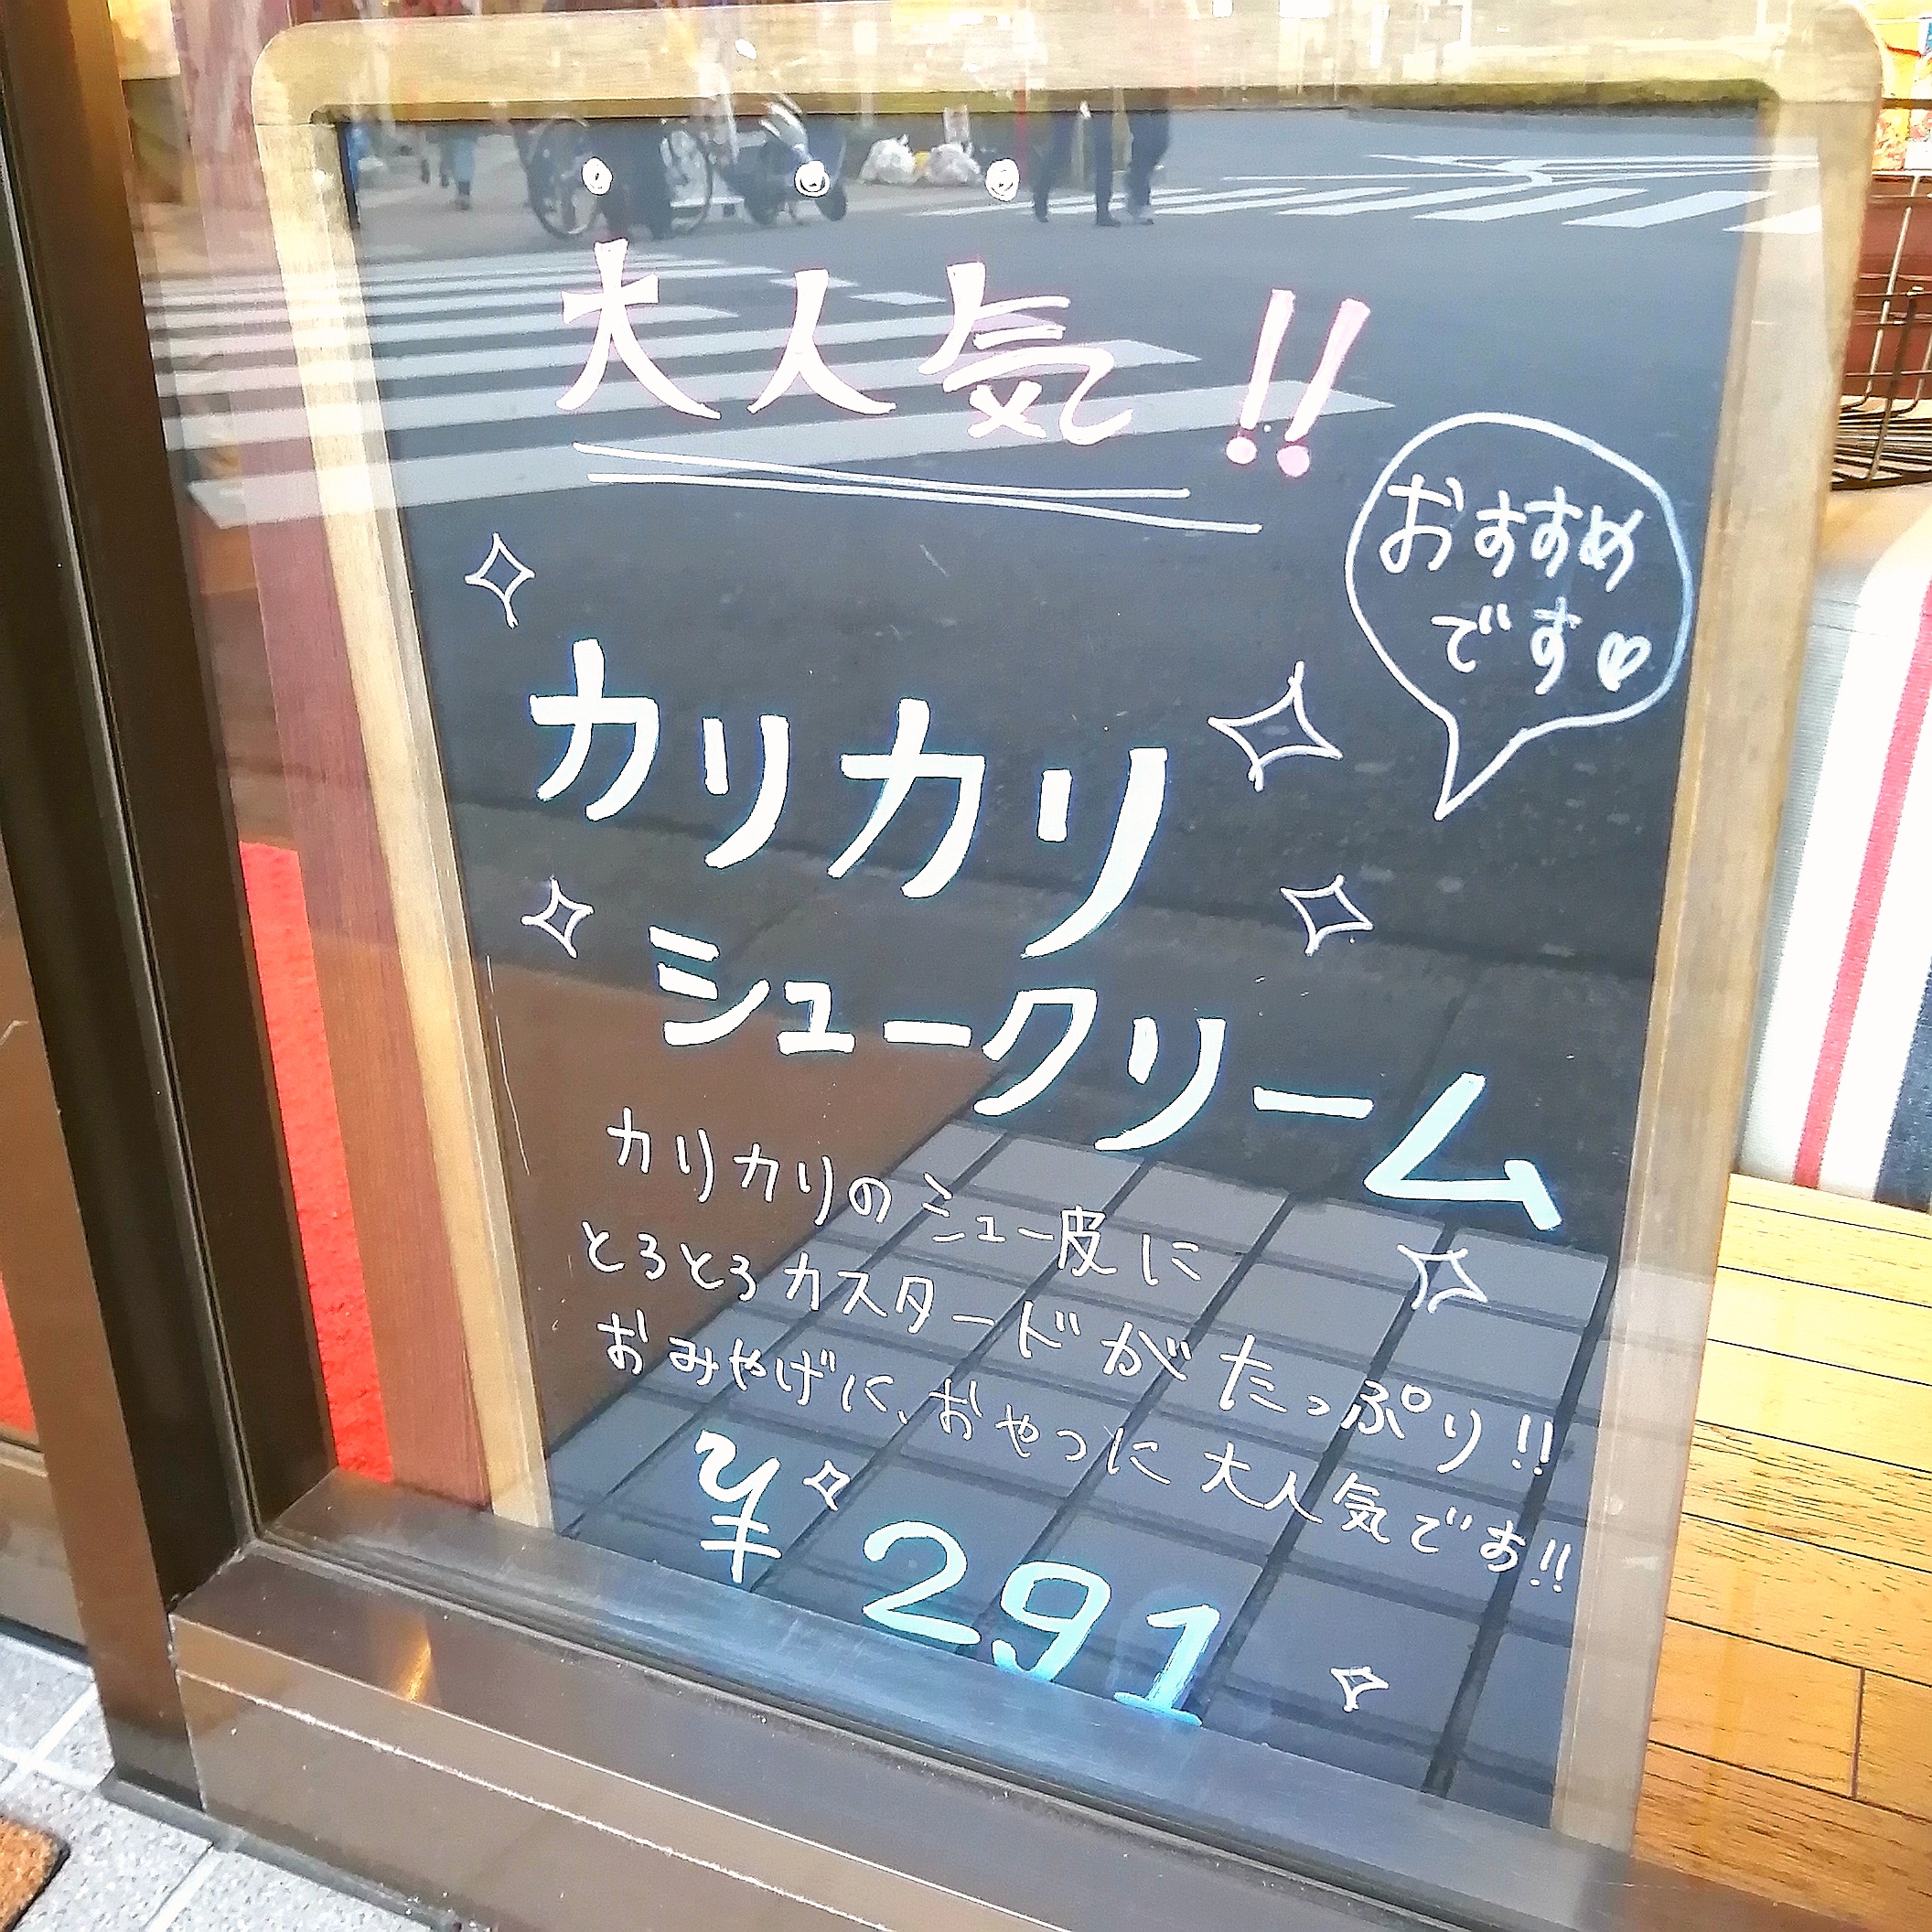 大人気!!
おすすめ
です♡
カリカリ
シュークリーム
カリカリのシュー皮に
とろとろカスタードがたっぷり!!
おみやげに、おやつに大人気です!!
¥291